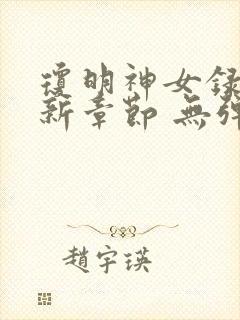 瓊明神女錄
新章節 無彈
趙宇瑛